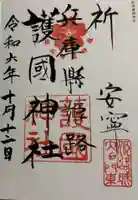 祈
安寧
兵庫縣姫路
護國神社
令和六年十月十二日